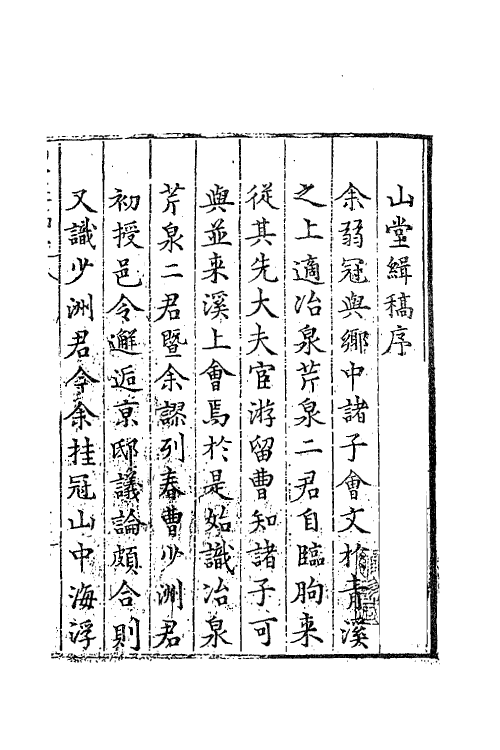 山堂緝稿序
余弱冠與鄉中諸子會文於青溪
之上適冶泉芹泉二君自臨朐来
從其先大夫宦游留曹知諸子可
與並来溪上會焉於是始識冶泉
芹泉二君暨余謬列春曹少洲君
初授邑令邂逅京邸議論頗合則
又識少洲君今余挂冠山中海浮